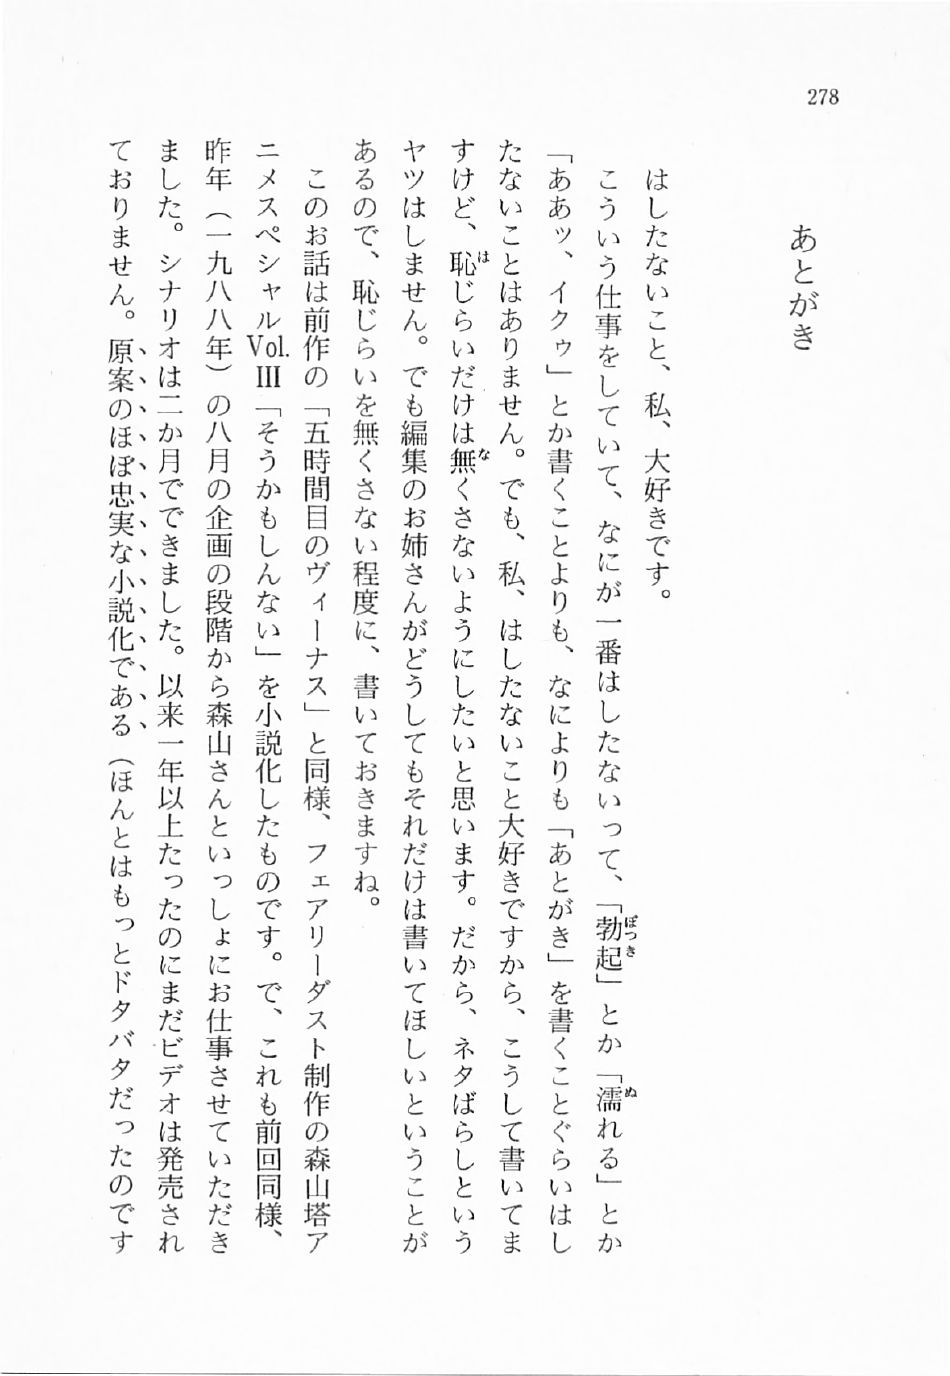 278
あとがき
はしたないこと、私、大好きです。
こういう仕事をしていて、なにが一番はしたないって、「勃起」とか「濡れる」とか
「ああッ、イクゥ」とか書くことよりも、なによりも「あとがき」を書くことぐらいはし
たないことはありません。でも、私、はしたないこと大好きですから、こうして書いてま
すけど、恥じらいだけは無くさないようにしたいと思います。だから、ネタばらしという
ヤツはしません。でも編集のお姉さんがどうしてもそれだけは書いてほしいということが
あるので、恥じらいを無くさない程度に、書いておきますね。
このお話は前作の「五時間目のヴィーナス」と同様、フェアリーダスト制作の森山塔ア
ニメスペシャルVol.III「そうかもしんない」を小説化したものです。で、これも前回同様、
昨年（一九八八年）の八月の企画の段階から森山さんといっしょにお仕事させていただき
ました。シナリオは二か月でできました。以来一年以上たったのにまだビデオは発売され
ておりません。原案のほぼ忠実な小説化である（ほんとはもっとドタバタだったのです